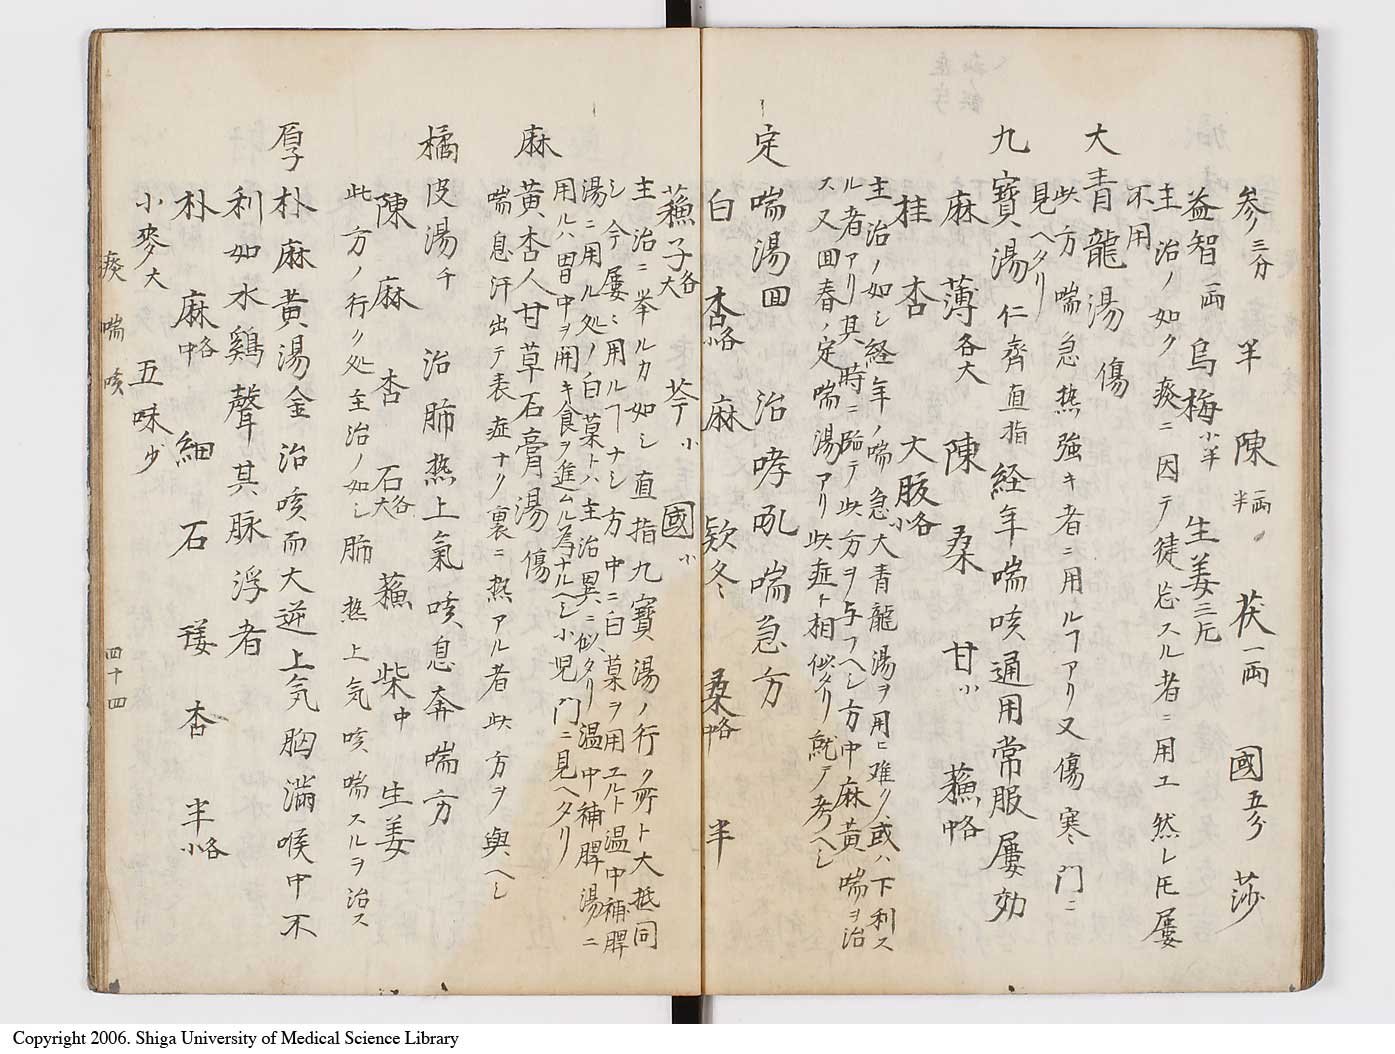 参三分 半 陳一両半 茯一両 國五分 莎
益智一両 烏梅小半 生姜三片
主治ノ如ク痰ニ因テ徒忘スル者ニ用ユ然レ𪜈屡
不用
大青龍湯傷
此方喘急熱強キ者ニ用ルヿアリ又傷寒門ニ
見ヘタリ
九寶湯仁齊直指経年喘咳通用常服屡効
麻 薄各大 陳 桑 甘小 蘓各中
桂 杏 大腹各小
主治ノ如シ経年ノ喘急大青龍湯ヲ用ヒ難ク或ハ下利ス
ル者アリ其時ニ臨テ此方ヲ与フヘシ方中麻黄喘ヲ治
ス又回春ノ定喘湯アリ此症ト相似タリ就テ考ヘシ
定喘湯回 治哮吼喘急方
白 杏各小 麻 欵冬 桑各中 半
蘓子各大 芩小 國小
主治ニ挙ルカ如シ直指九寶湯ノ行ク所ト大抵同
シ今屡用ルヿナシ方中ニ白菓ヲ用ユルト温中補脾
湯ニ用ル処ノ白菓トハ主治異ニ似タリ温中補脾湯ニ
用ルハ胃中ヲ開キ食ヲ進ムル為ナルヘシ小児門ニ見ヘタリ
麻黄杏人甘草石膏湯傷
喘息汗出テ表症ナク裏ニ熱アル者此方ヲ與ヘシ
橘皮湯千 治肺熱上氣咳息奔喘方
陳 麻 杏 石各大 蘓 柴中 生姜
此方ノ行ク処主治ノ如シ肺熱上気咳喘スルヲ治ス
厚朴麻黄湯金治咳而大逆上気胸滿喉中不
利如水鷄聲其脉浮者
朴 麻各中 細 石 杏 半各小
小麥大 五味少
痰 喘 咳 四十四